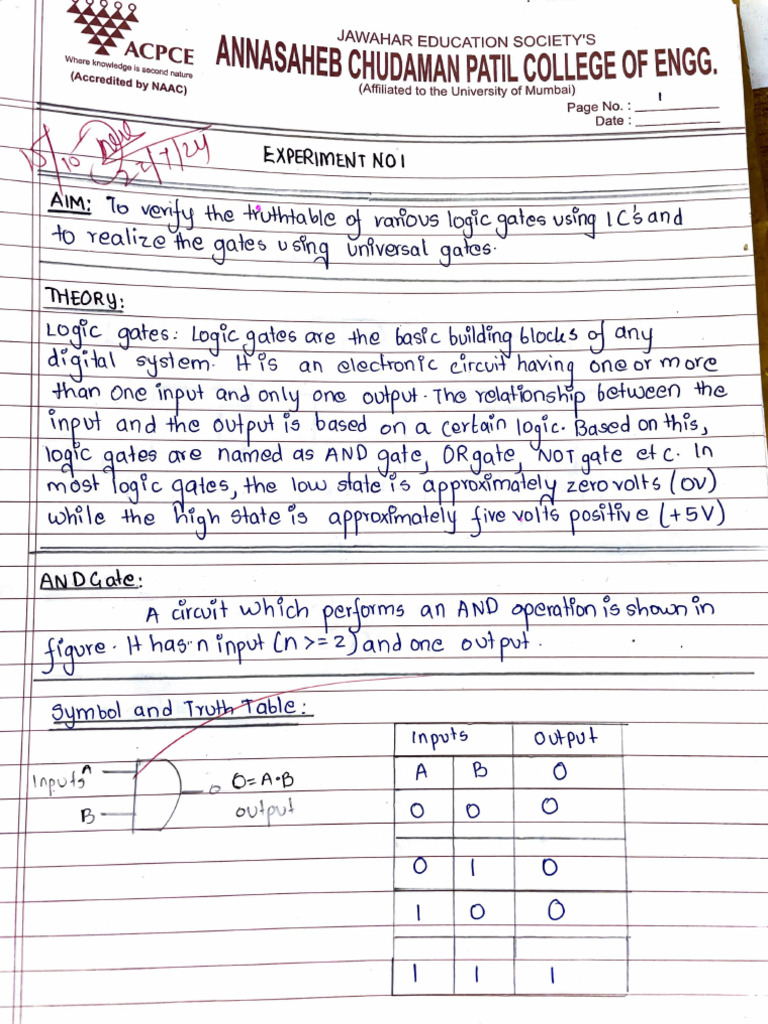 JAWAHAR EDUCATION SOCIETY'S
ACPCE
ANNASAHEB CHUDAMAN PATIL COLLEGE OF ENGG.
Where knowledge is second nature
(Accredited by NAAC)
(Affiliated to the University of Mumbai)
Page No. : 1
Date :
22/7/24
EXPERIMENT NO 1
AIM: To verify the truthtable of various logic gates using IC's and
to realize the gates using universal gates.
THEORY:
Logic gates: Logic gates are the basic building blocks of any
digital system. It is an electronic circuit having one or more
than one input and only one output. The relationship between the
input and the output is based on a certain logic. Based on this,
logic gates are named as AND gate, OR gate, NOT gate etc. In
most logic gates, the low state is approximately zero volts (0V)
while the high state is approximately five volts positive (+5V)
AND Gate:
A circuit which performs an AND operation is shown in
figure. It has n input (n >= 2) and one output.
Symbol and Truth Table:
Inputs A
B
O O=A•B
output
Inputs Output
A B O
0 0 0
0 1 0
1 0 0
1 1 1